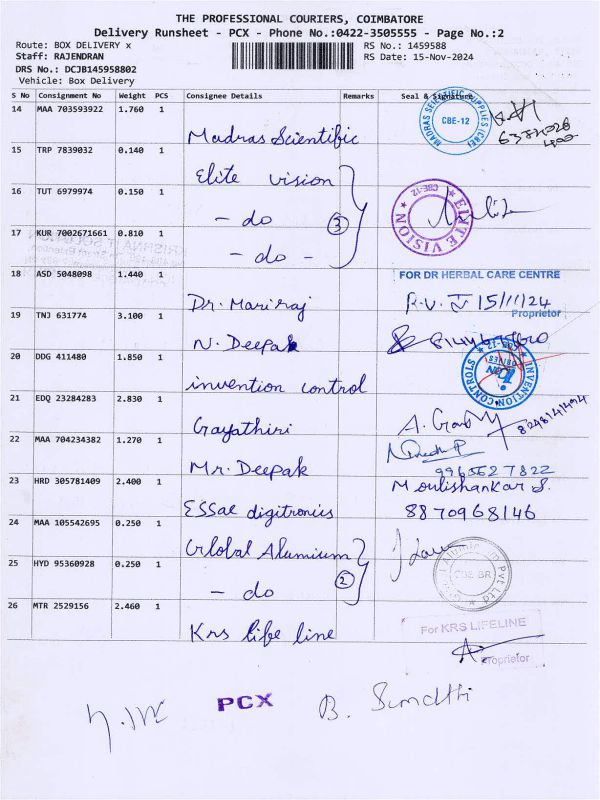 THE PROFESSIONAL COURIERS, COIMBATORE
Delivery Runsheet - PCX - Phone No.:0422-3505555 - Page No.:2
Route: BOX DELIVERY x RS No.: 1459588
Staff: RAJENDRAN RS Date: 15-Nov-2024
DRS No.: DCJB145958802
Vehicle: Box Delivery
S No Consignment No Weight PCS Consignee Details Remarks Seal & Signature
14 MAA 703593922 1.760 1 Madras Scientific
MADRAS SCIENTIFIC SUPPLIES (CBE) CBE-12
15 TRP 7839032 0.140 1 Elite vision
16 TUT 6979974 0.150 1 - do
3
ELITE VISION CBE-12
17 KUR 7002671661 0.810 1 - do -
18 ASD 5048098 1.440 1 Dr. Mariraj
FOR DR HERBAL CARE CENTRE
15/11/24
Proprietor
19 TNJ 631774 3.100 1 N. Deepak
20 DDG 411480 1.850 1 invention control
INVENTION CONTROLS
21 EDQ 23284283 2.830 1 Gayathiri
22 MAA 704234382 1.270 1 Mr. Deepak
9965527822
23 HRD 305781409 2.400 1 ESSae digitronics
Moulishankar S.
8870968146
24 MAA 105542695 0.250 1 Global Alumium
CBE BR
25 HYD 95360928 0.250 1 - do
2
26 MTR 2529156 2.460 1 Krs life line
For KRS LIFELINE
Proprietor
PCX B. Sumathi